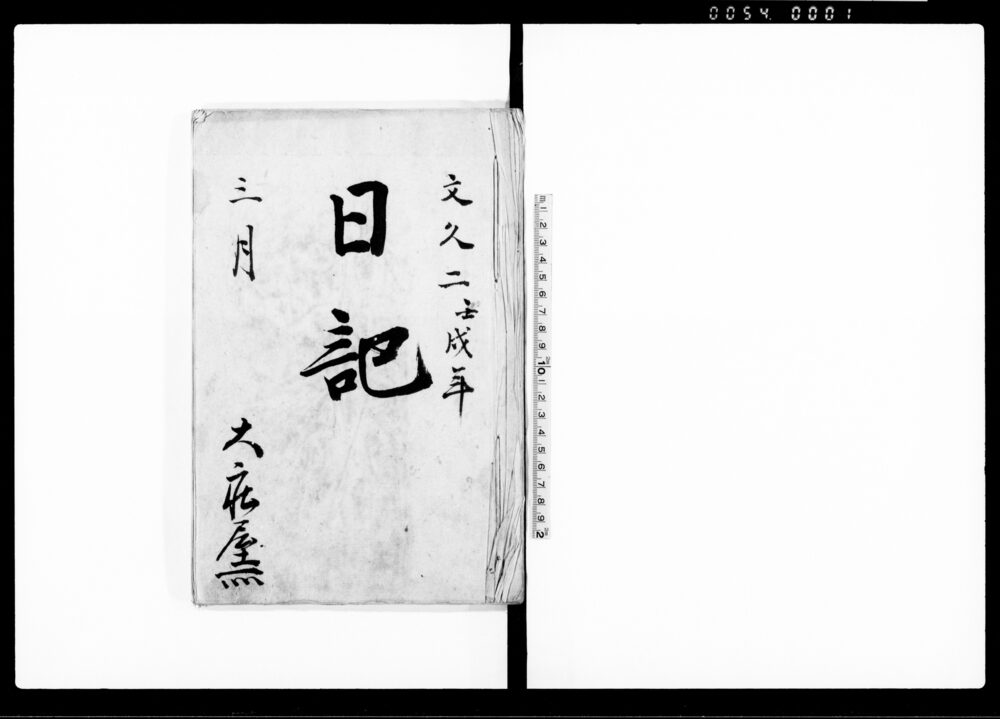 0054 0001
文久二壬戌年
日記
三月
大庄屋
m 1 2 3 4 5 6 7 8 9 10 1 2 3 4 5 6 7 8 9 2